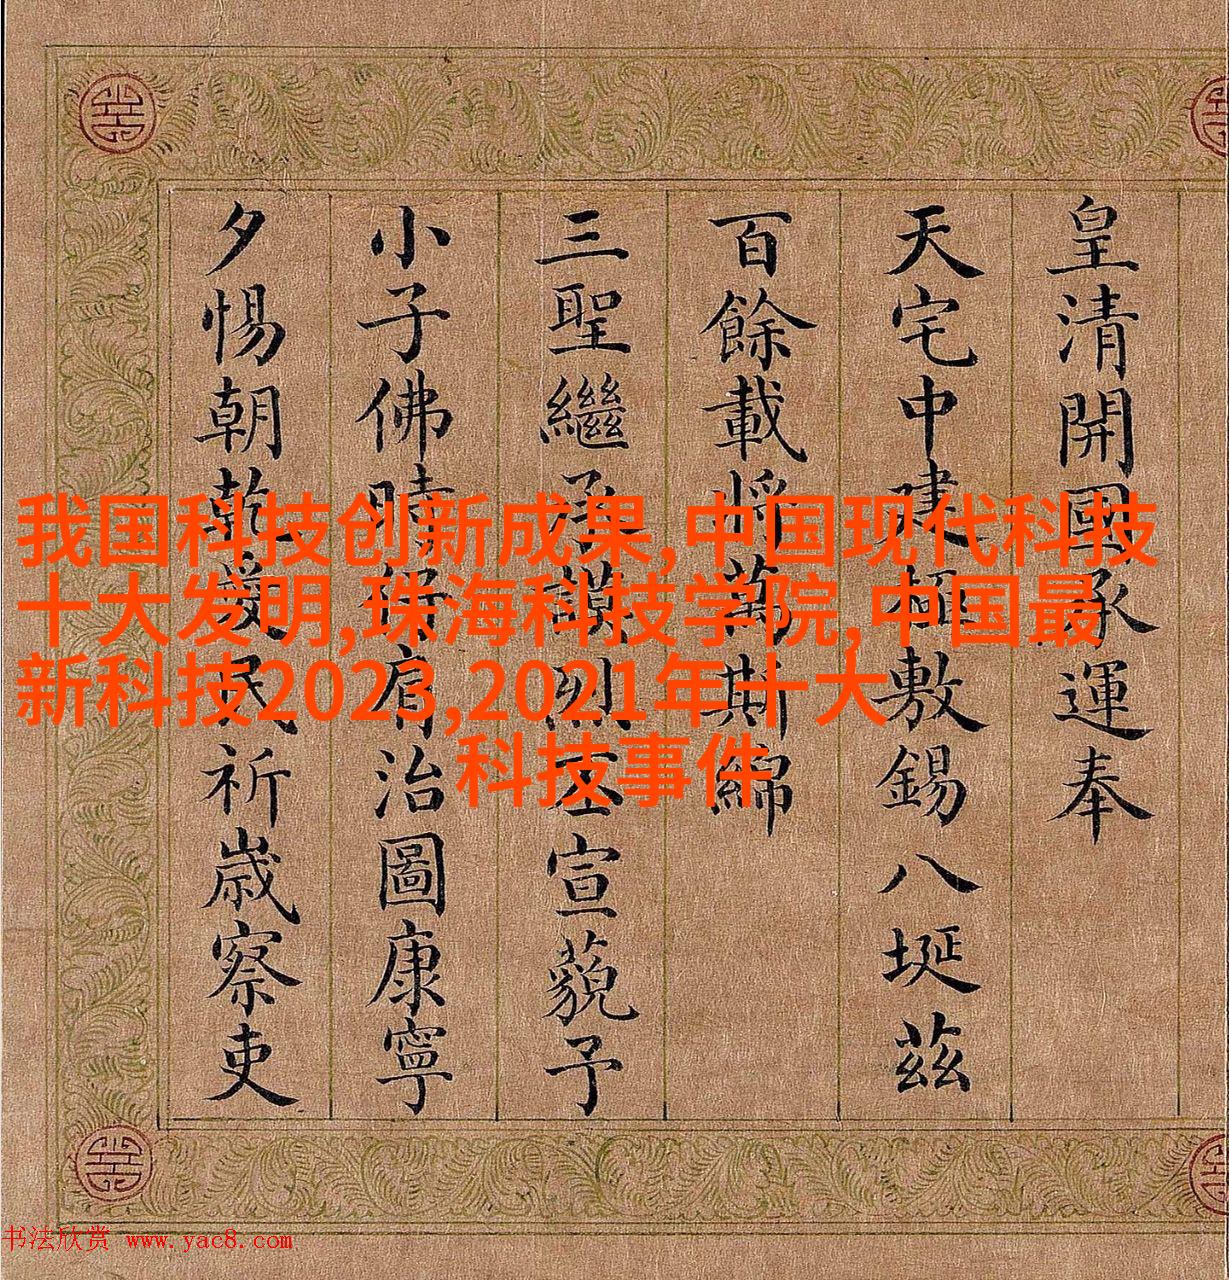 皇清開國承運奉
天宅中建極敷錫八埏茲
百餘載將萬斯綿
三聖繼承謨烈丕宣藐予
小子佛時肩治圖康寧
夕惕朝乾愛民祈歲察吏
我国科技创新成果,中国现代科技
十大发明,珠海科技学院,中国最
新科技2023,2021年十大
科技事件
书法欣赏 www.yac8.com